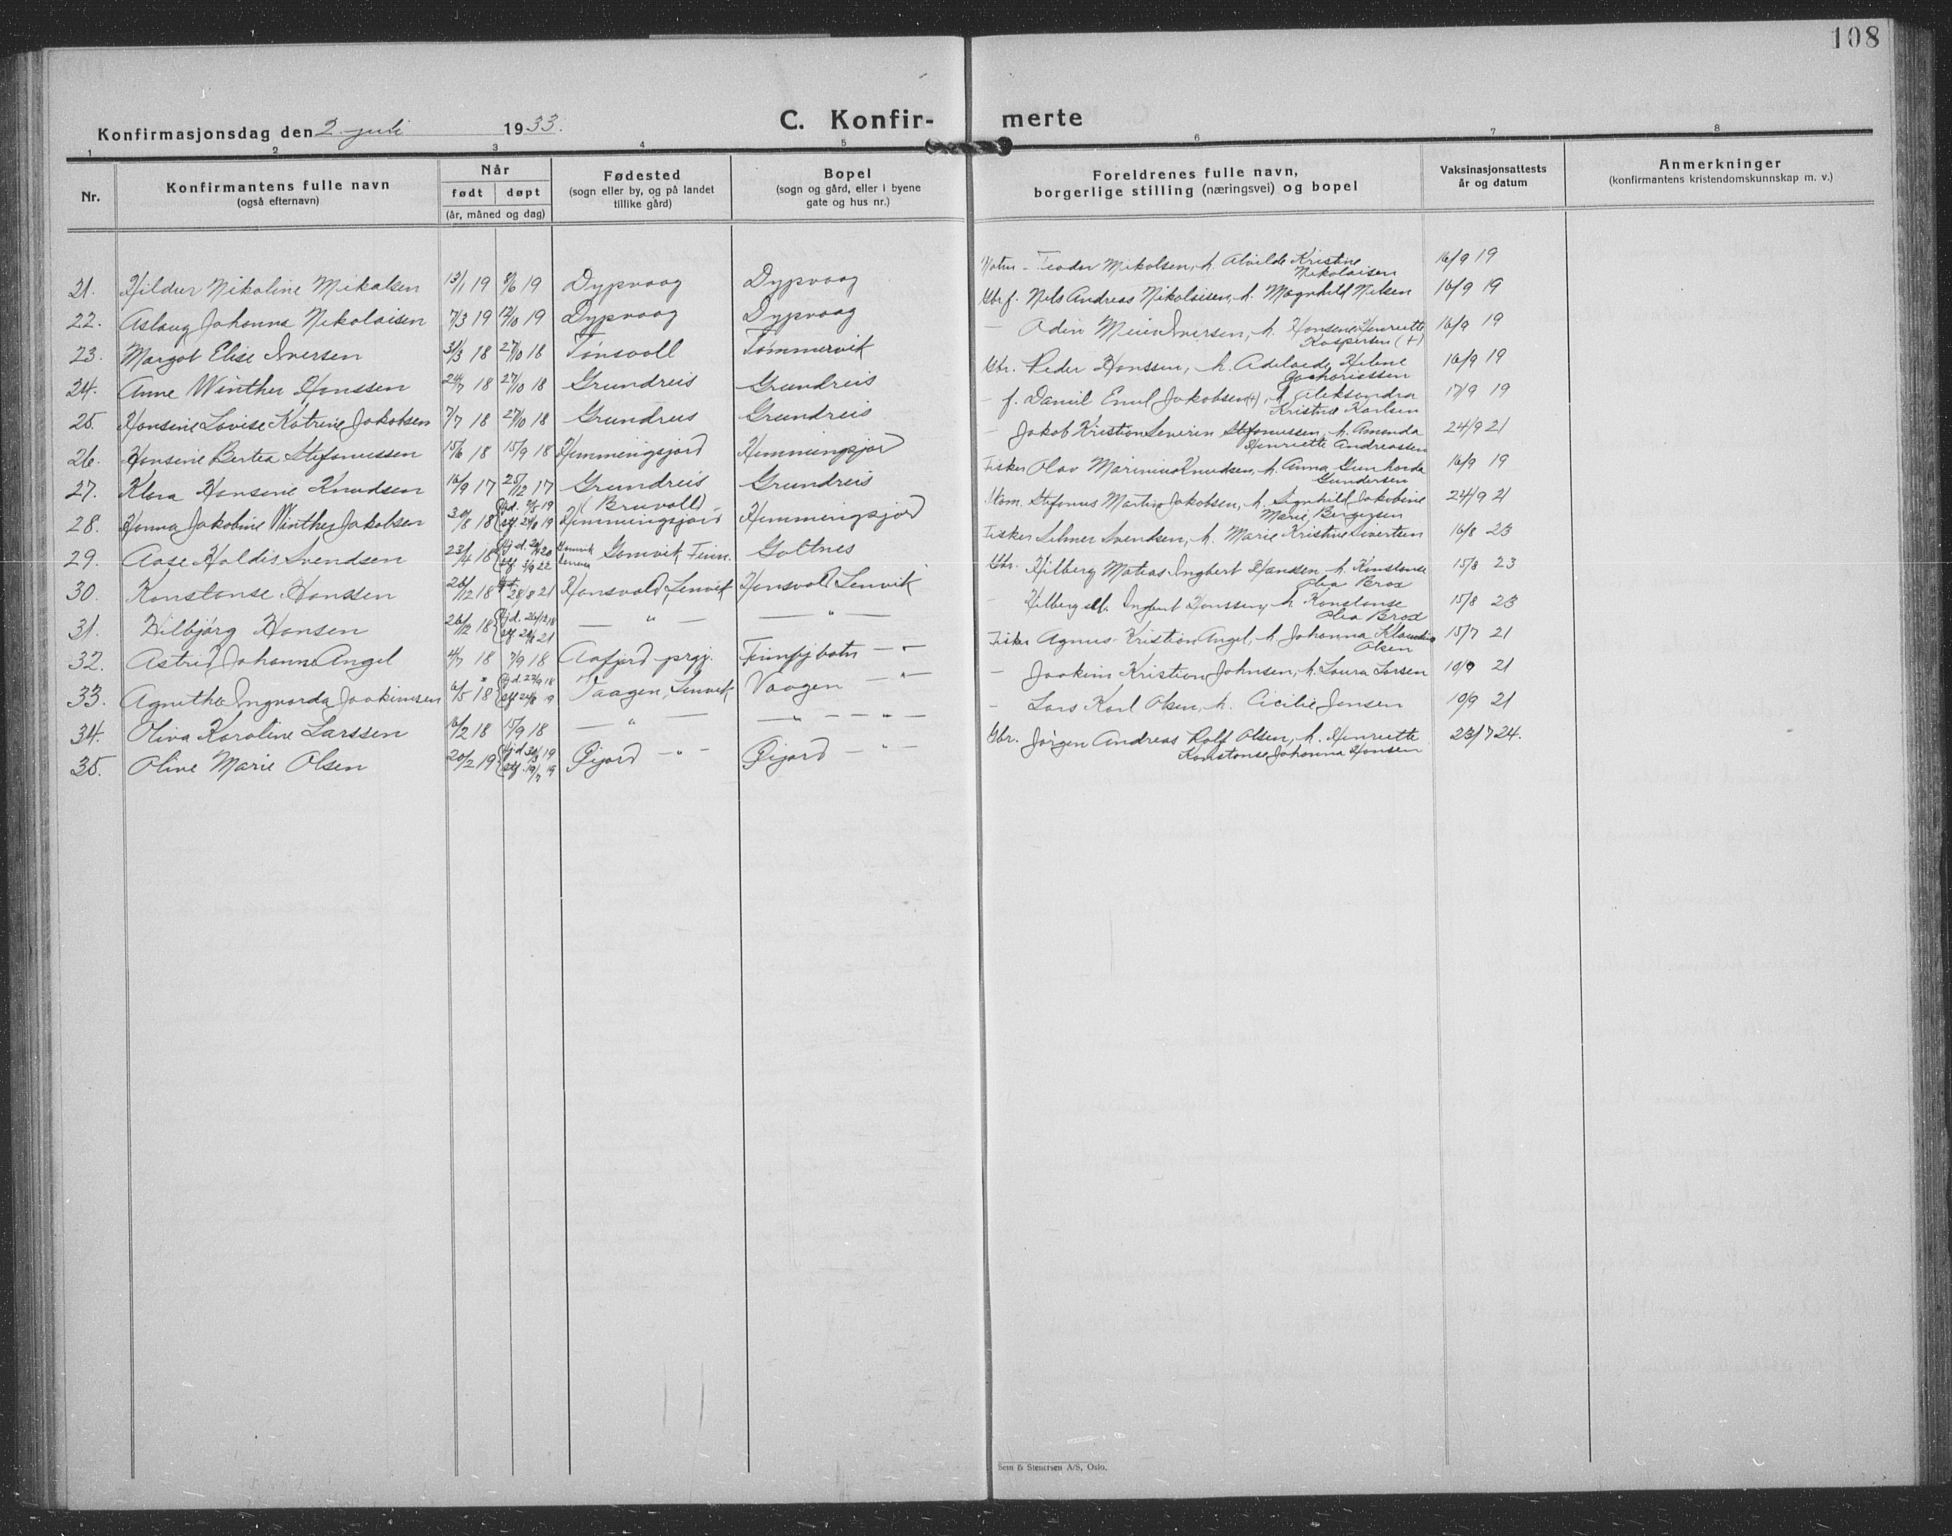 108
C. Konfir- merte
Konfirmasjonsdag den 2. juli 1933.
1 2 3 4 5 6 7 8
Nr.
Konfirmantens fulle navn
(også efternavn)
Når
født døpt
(år, måned og dag)
Fødested
(sogn eller by, og på landet
tillike gård)
Bopel
(sogn og gård, eller i byene
gate og hus nr.)
Foreldrenes fulle navn,
borgerlige stilling (næringsvei) og bopel
Vaksinasjonsattests
år og datum
Anmerkninger
(konfirmantens kristendomskunnskap m. v.)
21. Hildur Nikoline Mikalsen 13/1 19 8/6 19 Dypvaag Dypvaag Teodor Mikalsen, h. Alvilde Kristine Nikolaisen 16/9 19
22. Aslaug Johanna Nikolaisen 7/3 19 12/10 19 Dypvaag Dypvaag Gbr. f. Nels Andreas Nikolaisen, h. Magnhild Nilsen 16/9 19
23. Margot Elise Iversen 31/3 18 27/10 18 Tønsvoll Tømmervik — Adin Meier Iversen, h. Hansine Henriette Kaspersen (+) 16/9 19
24. Anne Winther Hanssen 24/7 18 27/10 18 Grundreis Grundreis Gbr. Peder Hanssen, h. Adelaide Helene Zachariassen 16/9 19
25. Hansine Lovise Katrine Jakobsen 7/7 18 27/10 18 Grundreis Grundreis — f. Daniel Emil Jakobsen (+), h. Aleksandra Kristine Karlsen 17/9 19
26. Hansine Bertea Stefanussen 15/6 18 15/9 18 Hemmingsjord Hemmingsjord — Jakob Kristian Severin Stefanussen, h. Amanda Henriette Andreassen 24/9 21
27. Klara Hansine Knudsen 16/9 17 25/12 17 Grundreis Grundreis Fisker Olav Marinius Knudsen, h. Anna Gunharda Gundersen 16/9 19
28. Hanna Jakobine Winther Jakobsen 30/8 18 (Bruvoll) Hemmingsjord Hemmingsjord Stefanus Martin Jakobsen, h. Signhild Jakobine Marie Bergersen 24/9 21
29. Aase Haldis Svendsen 23/4 18 Gamvik Finm. Goltnes Fisker Selmer Svendsen, h. Marie Kristine Sivertsen 16/8 23
30. Konstanse Hanssen 26/12 18 28/8 21 Hansvold, Lenvik Hansvold Lenvik Gbr. Hilberg Matias Ingbert Hansen h. Konstanse Olea Brox 15/8 23
31. Hilbjørg Hansen 26/12 18 — " — — " — — Hilberg M. Ingbert Hanssen, h. Konstanse Olea Brox 15/8 23
32. Astrid Johanne Angel 4/7 18 7/9 18 Aafjord prgj. Finnfjbotn — " — Fisker Agnus Kristian Angel, h. Johanna Klaudia Olsen 15/7 21
33. Agnethe Ingvarda Joakimsen 6/5 18 Vaagen, Lenvik Vaagen — " — — Joakim Kristian Johnsen, h. Laura Larsen 10/9 21
34. Oliva Karoline Larssen 16/2 18 15/9 18 — " — — " — — " — — Lars Karl Olsen, h. Cicilie Jensen 10/9 21
35. Olive Marie Olsen 20/2 19 Øijord — " — Øijord — " — Gbr. Jørgen Andreas Rolf Olsen, h. Henriette Konstanse Johanna Hansen 23/7 24.
Sem & Stenersen A/S, Oslo.